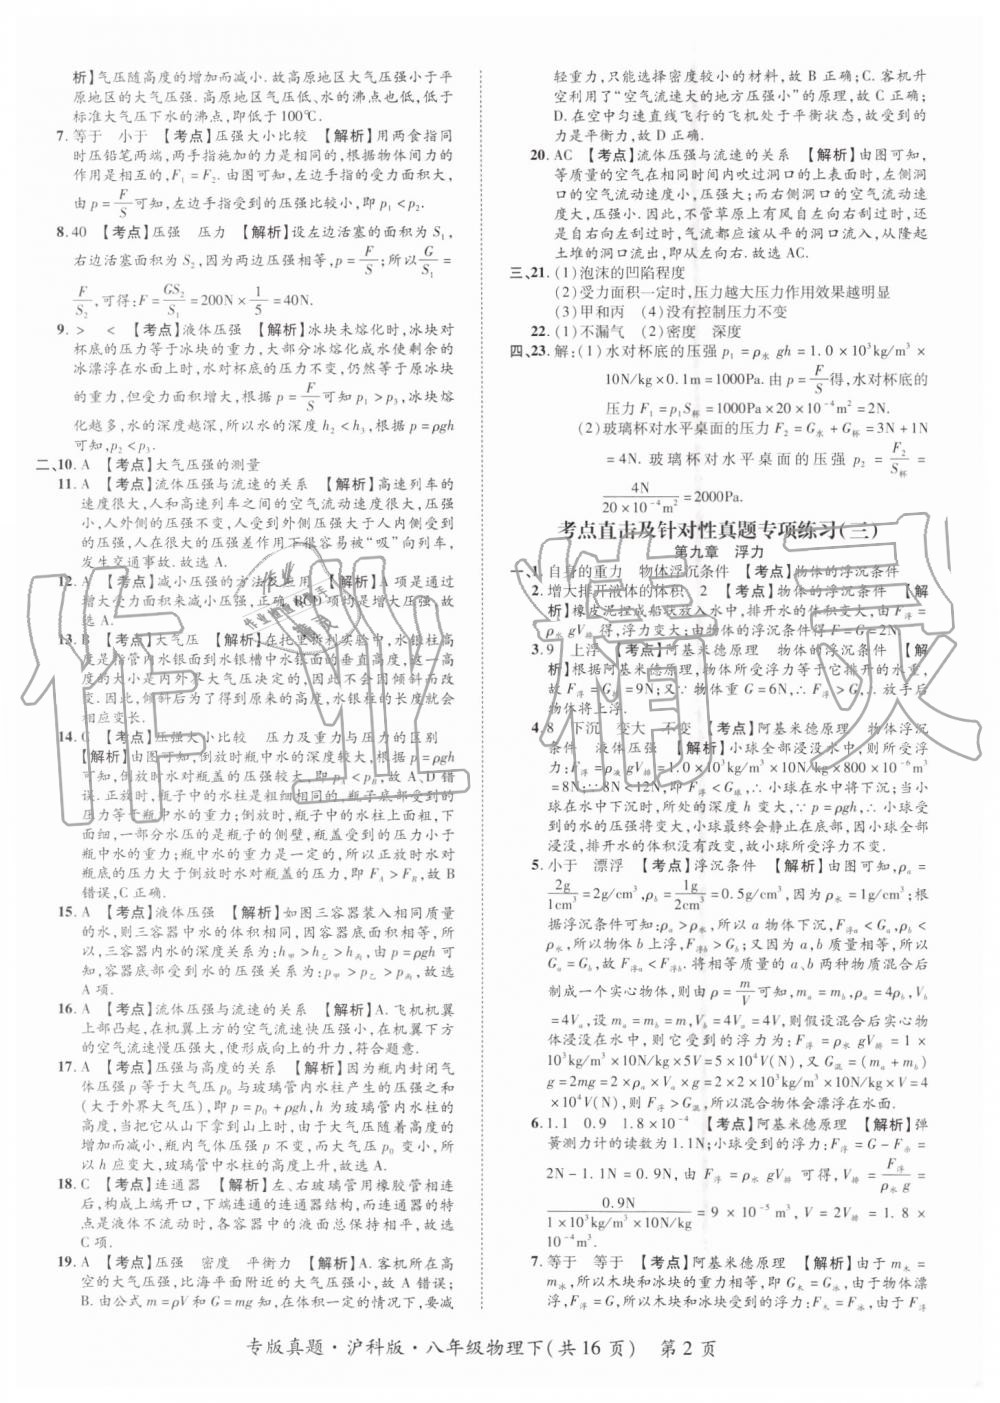 析】气压随高度的增加而减小. 故高原地区大气压强小于平
原地区的大气压强. 高原地区气压低、水的沸点也低,低于
标准大气压下水的沸点,即低于100℃.
7. 等于 小于 【考点】压强大小比较 【解析】用两食指同
时压铅笔两端,两手指施加的力是相同的,根据物体间力的
作用是相互的,F₁=F₂. 由图可知,左边手指的受力面积大,
由p=F/S可知,左边手指受到的压强比较小,即p₁<p₂.
8. 40 【考点】压强 压力 【解析】设左边活塞的面积为S₁,
右边活塞面积为S₂,因为两边压强相等,p=F/S;所以G/S₁=
F/S₂,可得:F=GS₂/S₁=200N×1/5=40N.
9. > < 【考点】液体压强 【解析】冰块未熔化时,冰块对
杯底的压力等于冰块的重力,大部分冰融化成水使剩余的
冰漂浮在水面上时,对杯底的压力不变,仍然等于原冰块
的重力,但受力面积增大,根据p=F/S可知p₁>p₃,冰块熔
化越多,水的深度越深,所以水的深度h₂<h₃,根据p=ρgh
可知,p₂<p₃.
二、10. A 【考点】大气压强的测量
11. A 【考点】流体压强与流速的关系 【解析】高速列车的
速度很大,人和高速列车之间的空气流动速度很大,压强
小,人外侧的压强不变,人受到外侧压强大于人内侧受到
的压强,人在内外压强差的作用下很容易被“吸”向列车,
发生交通事故. 故选A.
12. A 【考点】减小压强的方法及应用 【解析】A项是通过
增大受力面积来减小压强,正确. BCD项均是增大压强. 故
选A.
13. B 【考点】大气压 【解析】在托里拆利实验中,水银柱高
度是指管内水银面到管外水银面的垂直高度,这一高度
的大小是由外界大气压决定的,因此不会因倾斜而改
变. 因此,倾斜后为了得到原来的高度,水银柱的长度就会
相应变长.
14. C 【考点】压强大小比较 压力及重力与压力的区别
【解析】由图可知,倒放时瓶中水的深度较大,根据p=ρgh
可知,倒放时水对瓶盖的压强较大,即p_A<p_B,故A、D错
误. 正放时,瓶子中的水柱是粗细相同的,瓶底受到的压
力等于瓶中水的重力;倒放时,瓶子中的水柱上面粗,下
面细,一部分水压的是瓶子的侧壁,瓶盖受到的压力小于
瓶中水的重力;瓶中水的重力是一定的,所以正放时水对
瓶底的压力大于倒放时水对瓶盖的压力,即F_A>F_B. 故B
错误,C正确.
15. A 【考点】液体压强 【解析】如图三容器装入相同质量
的水,则三容器中水的体积相同,因容器底部面积相等,所
以,三容器内水的深度关系为:h甲>h乙>h丙,由p=ρgh
可知,容器底部受到水的压强关系为:p甲>p乙>p丙,故选
A项.
16. A 【考点】流体压强与流速的关系 【解析】A. 飞机机翼
上部凸起,在机翼上方的空气流速快压强小,在机翼下方
的空气流速慢压强大,便形成向上的升力,符合题意.
17. A 【考点】压强与高度的关系 【解析】因为瓶内封闭气
体压强p等于大气压p₀与玻璃管内水柱产生的压强之和
(大于外界大气压),即p=p₀+ρgh,h为玻璃管内水柱的
高度,当把它从山下拿到山上时,由于大气压随着高度的
增大而减小,瓶内气体压强p不变,而大气压p₀变小,所
以h应变大,玻璃管中水柱上升,故选A.
18. C 【考点】连通器 【解析】左、右玻璃管用橡胶管相连
后,构成上端开口,下端连通的连通器结构,而连通器的特
点是液体不流动时,各容器中的液面总保持相平,故选
C项.
19. A 【考点】压强 密度 平衡力 【解析】A. 客机所在高
空的大气压强,比海平面附近的大气压强小,故A错误;
B. 由公式m=ρV和G=mg知,在体积一定的情况下,要减
轻重力,只能选择密度较小的材料,故B正确;C. 客机升
空利用了“空气流速大的地方压强小”的原理,故C正确;
D. 在空中匀速直线飞行的飞机处于平衡状态,故受到的
力是平衡力,故D正确. 故选A.
20. AC 【考点】流体压强与流速的关系 【解析】由图可知,
等质量的空气在相同时间内吹过洞口的上表面时,左侧洞
口的空气流动速度小,压强大;而右侧洞口的空气流动速
度大,压强小. 因此,不管草原上有风自左向右刮过时,还
是自右向左刮过时,气流都应该从平的洞口流入,从隆起
土堆的洞口流出,即从左向右. 故选AC.
三、21. (1)泡沫的凹陷程度
(2)受力面积一定时,压力越大压力作用效果越明显
(3)甲和丙 (4)没有控制压力不变
22. (1)不漏气 (2)密度 深度
四、23. 解:(1)水对杯底的压强p₁=ρ水gh=1.0×10³kg/m³×
10N/kg×0.1m=1000Pa. 由p=F/S可得,水对杯底的
压力F₁=p₁S杯=1000Pa×20×10⁻⁴m²=2N.
(2)玻璃杯对水平桌面的压力F₂=G水+G杯=3N+1N
=4N. 玻璃杯对水平桌面的压强p₂=F₂/S杯=
4N/20×10⁻⁴m²=2000Pa.
考点直击及针对性真题专项练习(三)
第九章 浮力
一、1. 自身的重力 物体浮沉条件 【考点】物体的浮沉条件
2. 增大排开液体的体积 2 【考点】物体的浮沉条件 【解
析】橡皮泥捏成船状放入水中,排开水的体积变大,由F浮=
ρ水gV排得,浮力变大;由物体的浮沉条件得F浮=G=2N.
3. 9 上浮 【考点】阿基米德原理 物体的浮沉条件 【解
析】根据阿基米德原理,物体所受浮力等于它排开的水重,
故F浮=G排=9N;又∵物体重G=6N,∴F浮>G,∴放手后
物体将上浮.
4. 8 下沉 变大 不变 【考点】阿基米德原理 物体浮沉
条件 液体压强 【解析】小球全部浸没水中,则所受浮
力:F浮=ρ水gV排=1.0×10³kg/m³×10N/kg×800×10⁻⁶m³
=8N;∵8N<12N,即F浮<G球,∴小球在水中将下沉;当小
球在水中下沉时,所处的深度h变大,∵p=ρgh,∴小球受到
的水的压强将变大,小球最终会静止在底部,因小球全部浸
没,排开水的体积没有改变,故小球所受浮力不变.
5. 小于 漂浮 【考点】浮沉条件 【解析】由图可知,ρa=
2g/1cm³=2g/cm³,ρb=1g/2cm³=0.5g/cm³,因为ρ水=1g/cm³;根
据浮沉条件可知:ρa>ρ水,所以a物体下沉,F浮a<Ga,ρb<
ρ水,所以物体b上浮,F浮b>Gb;又因为a、b质量相等,所以
Ga=Gb,故F浮a<F浮b. 将相等质量的a、b两种物质混合后
制成一个实心物体,则由ρ=m/V可知,ρa=4ρb,则Vb
=4Va,设ma=mb=m,Vb=4Va=4V,则假设混合后实心物
体浸没在水中,则它受到的浮力为:F浮=ρ水gV排=1×
10³kg/m³×10N/kg×5V=5×10⁴V(N),又G混=(ma+mb)
g=2mg=2×ρaVag=2×2×10³kg/m³×10N/kg×V=4
×10⁴V(N),故F浮>G混,所以混合物体会漂浮在水面.
6. 1.1 0.9 1.8×10⁻⁴ 【考点】阿基米德原理 【解析】弹
簧测力计的读数为1.1N;小球受到的浮力:F浮=G-F示=
2N-1.1N=0.9N,由F浮=ρ水gV排可得,V排=F浮/ρ水g=
0.9N/1×10³kg/m³×10N/kg=9×10⁻⁵m³,V=2V排=1.8×
10⁻⁴m³.
7. 等于 等于 【考点】阿基米德原理 【解析】由于m木=
m冰,所以木块和冰块的重力相等,即G木=G冰,由于物体漂
浮,F浮=G,所以木块和冰块受到的浮力:F木=F冰,由于F浮
专版真题·沪科版·八年级物理下(共16页) 第2页
作业精灵